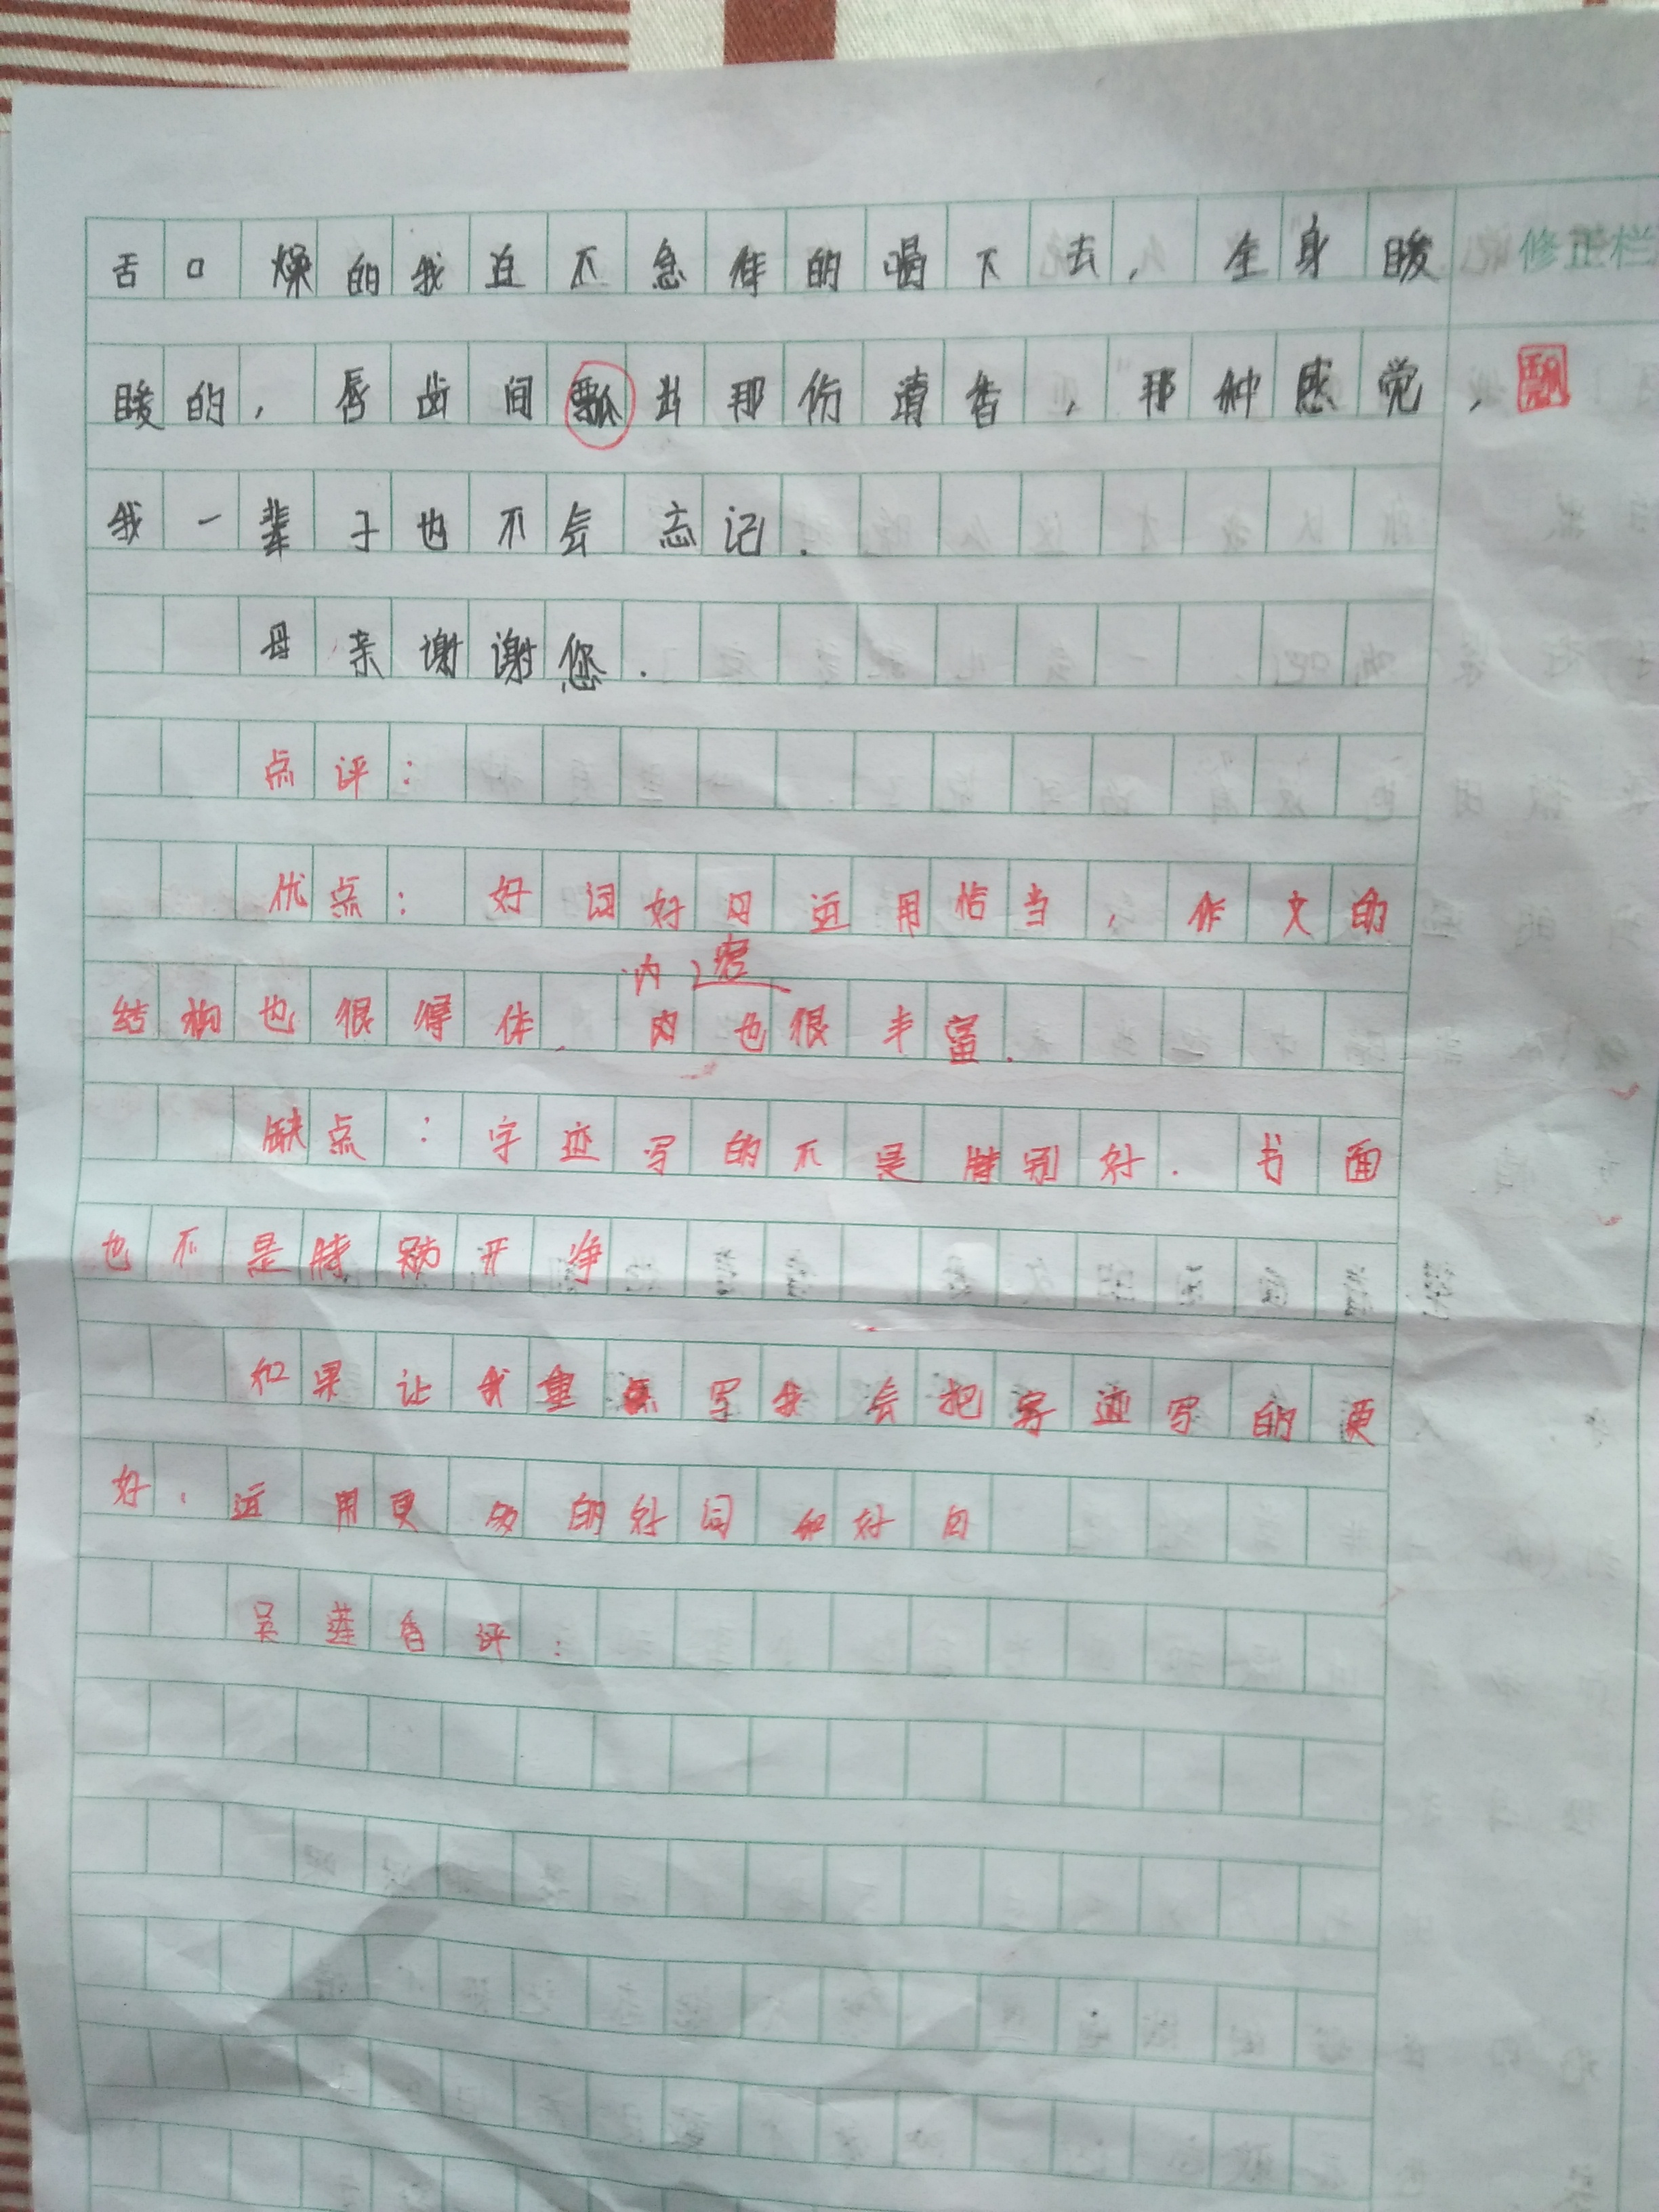 舌口燥的我迫不急待的喝下去，全身暖 修正栏
暖的，唇齿间瓢出那份清香，那种感觉， 飘
我一辈子也不会忘记.
母亲谢谢您.
点评：
优点：好词好句运用恰当，作文的
内容
结构也很得体. 内也很丰富.
缺点：字迹写的不是特别好.书面
也不是特别干净
如果让我重点写我会把字迹写的更
好、运用更多的好词和好句
吴莲香评：